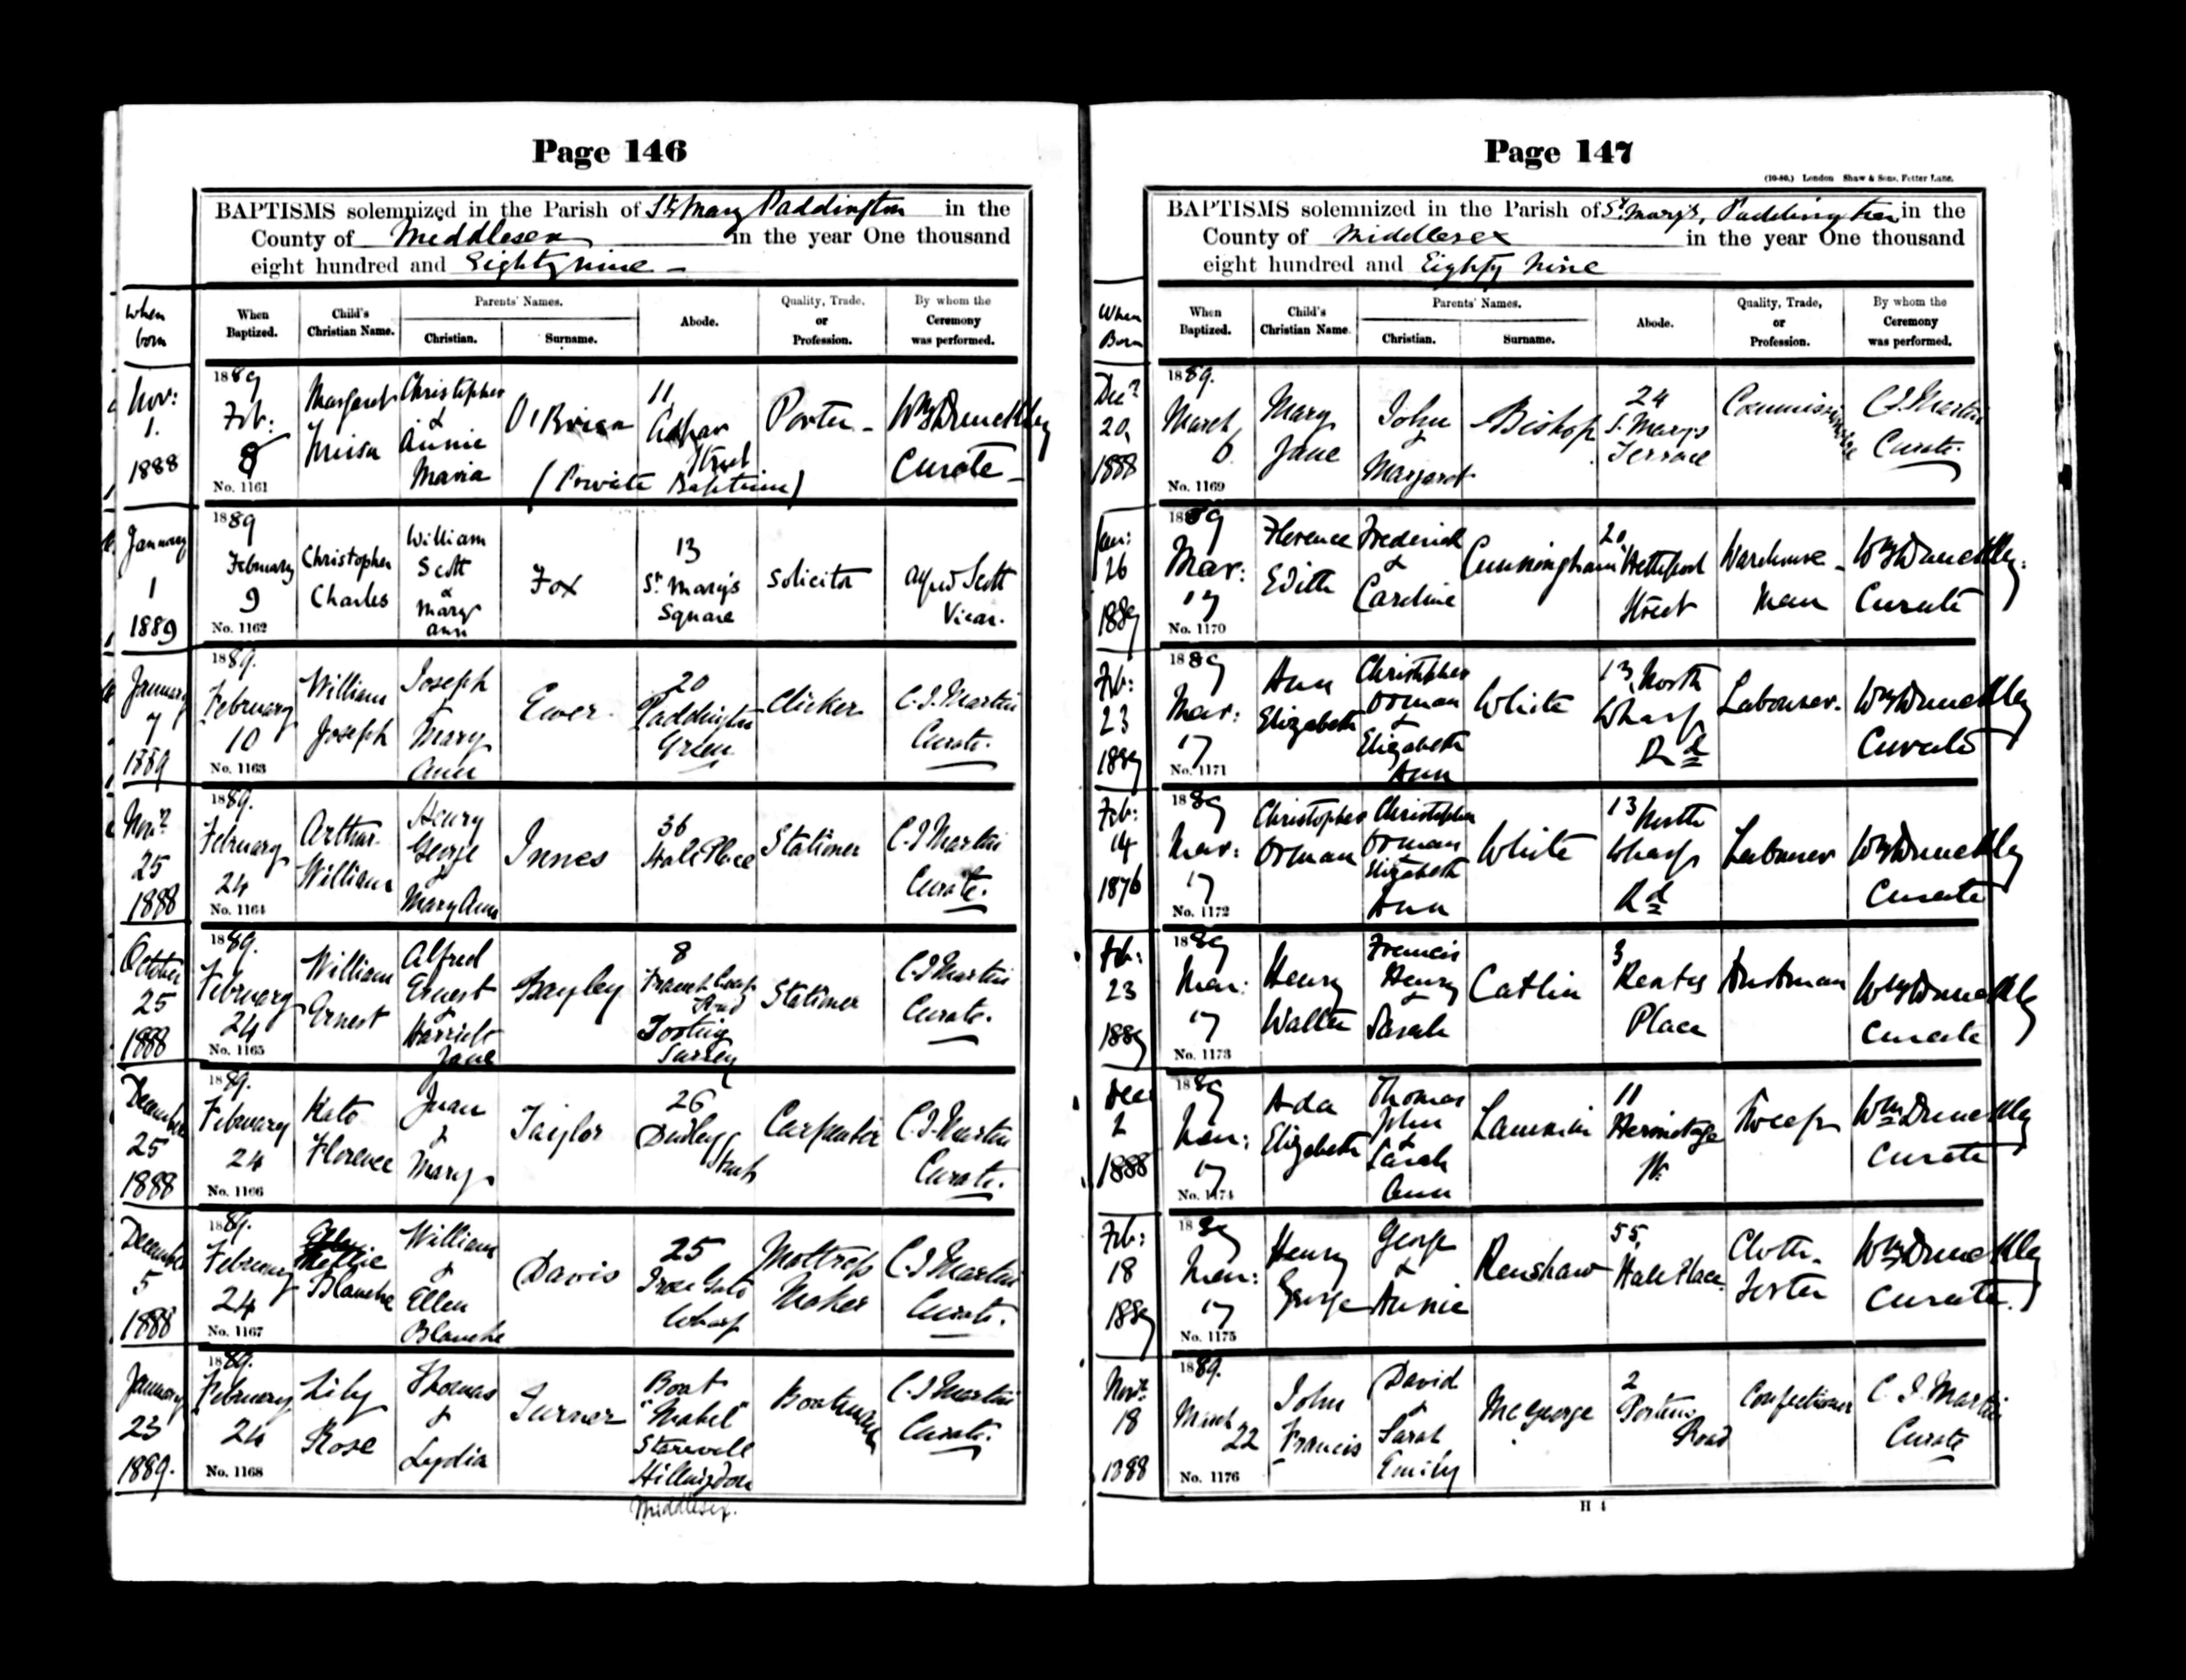 Page 146
BAPTISMS solemnized in the Parish of St Mary Paddington in the
County of Middlesex in the year One thousand
eight hundred and Eighty nine
When born
When Baptized.
Child's Christian Name.
Parents' Names.
Christian.
Surname.
Abode.
Quality, Trade, or Profession.
By whom the Ceremony was performed.
Nov: 1. 1888
1889 Feb: 8
No. 1161
Margaret
Christopher & Annie Maria
O'Brien
11
Street
(Private Baptism)
Porter
Curate
January 1 1889
1889 February 9
No. 1162
Christopher Charles
William Scott & Mary Ann
Fox
13 St Mary's Square
Solicitor
Alfred Scott Vicar.
January 7 1889
1889. February 10
No. 1163
William Joseph
Joseph Mary Ann
Ewer
20 Paddington Green
Clicker
C. J. Martin Curate.
Novr 25 1888
1889. February 24
No. 1164
Arthur William
Henry George & Mary Ann
Innes
36 Hall Place
Stationer
C. J. Martin Curate.
October 25 1888
1889. February 24
No. 1165
William Ernest
Alfred Ernest & Harriett Jane
Bayley
8
Road
Tooting Surrey
Stationer
C. J. Martin Curate.
December 25 1888
1889. February 24
No. 1166
Kate Florence
& Mary
Taylor
26 Dudley Street
Carpenter
C. J. Martin Curate.
December 5 1888
1889. February 24
No. 1167
Nellie Blanche
William & Ellen Blanche
Davis
25 Iron Gate Wharf
Mattress Maker
C. J. Martin Curate.
January 23 1889.
1889. February 24
No. 1168
Lily Rose
Thomas & Lydia
Turner
Boat "Mabel"
Hillingdon
Middlesex.
Boatman
C. J. Martin Curate.
Page 147
(10-86.) London Shaw & Sons, Fetter Lane.
BAPTISMS solemnized in the Parish of St Mary's, Paddington in the
County of Middlesex in the year One thousand
eight hundred and Eighty Nine
When Born
When Baptized.
Child's Christian Name.
Parents' Names.
Christian.
Surname.
Abode.
Quality, Trade, or Profession.
By whom the Ceremony was performed.
Decr 20, 1888
1889. March 6
No. 1169
Mary Jane
John & Margaret
Bishop
24 St. Marys Terrace
C. J. Martin Curate.
Jan: 26 1889
1889 Mar: 17
No. 1170
Florence Edith
Frederick & Caroline
Cunningham
20
Street
Warehouse-Man
Curate
Feb: 23 1889
1889 Mar: 17
No. 1171
Ann Elizabeth
Christopher Orman & Elizabeth Ann
White
13 North Wharf Rd
Labourer.
Curate
Feb: 14 1876
1889 Mar: 17
No. 1172
Christopher Orman
Christopher Orman Elizabeth Ann
White
13 North Wharf Rd
Labourer
Curate
Feb: 23 1889
1889 Mar: 17
No. 1173
Henry Walter
Francis Henry & Sarah
Catlin
3
Place
Curate
Dec 2 1888
1889 Mar: 17
No. 1174
Ada Elizabeth
Thomas John & Sarah Ann
11 Hermitage St.
Sweep
Curate
Feb: 18 1889
1889 Mar: 17
No. 1175
Henry George
George & Annie
Renshaw
55, Hall Place.
Cloth-
Curate.
Novr 18 1888
1889. March 22
No. 1176
John Francis
David & Sarah Emily
McGeorge
2 Porteus Road
Confectioner
C. J. Martin Curate
H 4